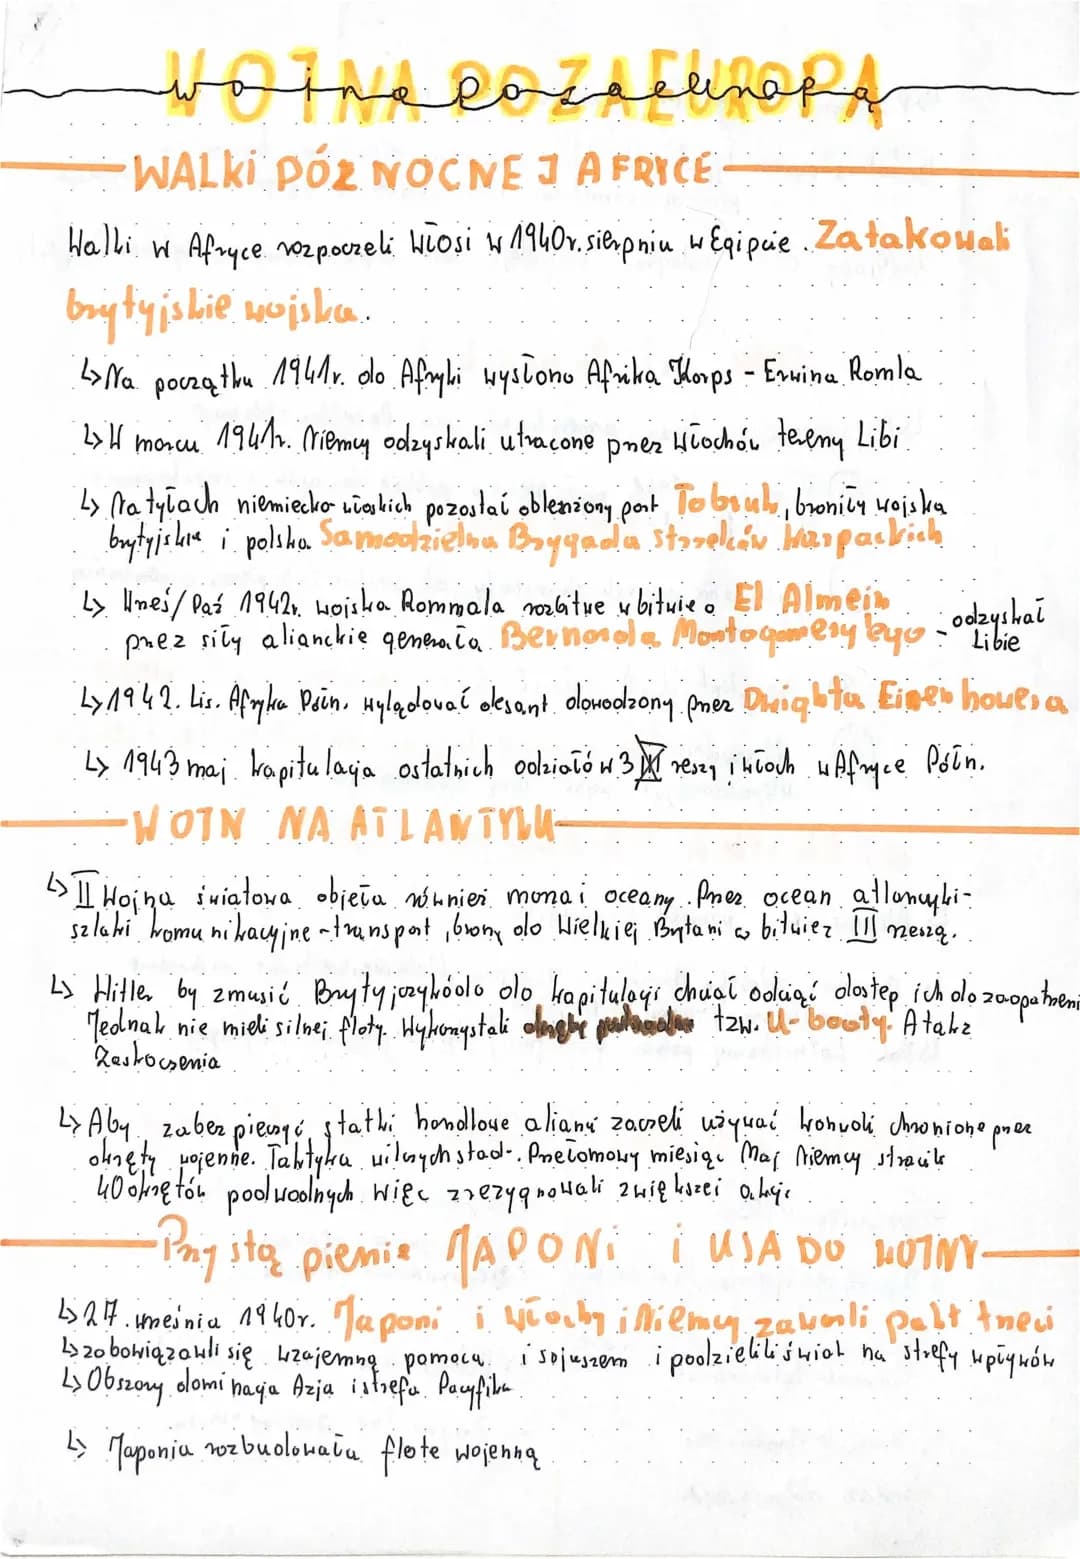 WOJNA POZA EUROPĄ
WALKi PÓŁNOCNEJ AFRYCE
Walki w Afryce rozpoczeli Włosi w 1940r. sierpniu w Egipcie. Zatakowali
brytyjskie wojska.
↳ Na początku 1941r. do Afryki wysłono Afrika Korps - Erwina Romla
↳ W marcu 1941r. Niemcy odzyskali utracone przez Włochów tereny Libi
↳ Na tyłach niemiecko-włoskich pozostał oblężiony port Tobruk, broniły wojska
brytyjskie i polska Samodzielna Brygada strzelców karpackich
↳ Wrześ/Paź 1942r. wojska Rommala rozbitue w bitwie o El Almein
przez siły alianckie generała Bernarda Montogomery'ego - odzyskał
Libie
↳ 1942. Lis. Afryka Półn. wylądował desant dowodzony przez Dwighta Eisenhowera
↳ 1943 maj kapitulacja ostatnich odziałów 3 reszy i włoch w Afryce Półn.
WOJN NA ATLANTYKU
↳ II Wojna światowa objeła również morza i oceany. Przez ocean atlantycki-
szlaki komunikacyjne - transport, brony do Wielkiej Brytani w bitwie z III rzeszą.
↳ Hitler by zmusić Brytyjczyków do kapitulacji chciał odciąć dostep ich do zaopatrzeni
Jednak nie mieli silnej floty. Wykorzystali okręty podwodne tzw. U-booty. Atakz
Zaskoczenia
↳ Aby zabezpieczyć statki handlowe alianci zaczeli używać konwoli chronione przez
okręty wojenne. Taktyka wilczych stad-. Przełomowy miesiąc Maj Niemcy stracili
40 okrętów podwodnych więc zrezygnowali z większei akcji
Przystąpienie JAPONi i USA DO WOJNY
↳ 27. września 1940r. Japoni i Włochy i Niemcy zawarli pakt trzeci
↳ zobowiązali się wzajemną pomocą i sojuszem i podzielili świat na strefy wpływów
↳ Obszary dominacja Azja i strefa Pacyfiku
↳ Japonia rozbudowała flote wojenną